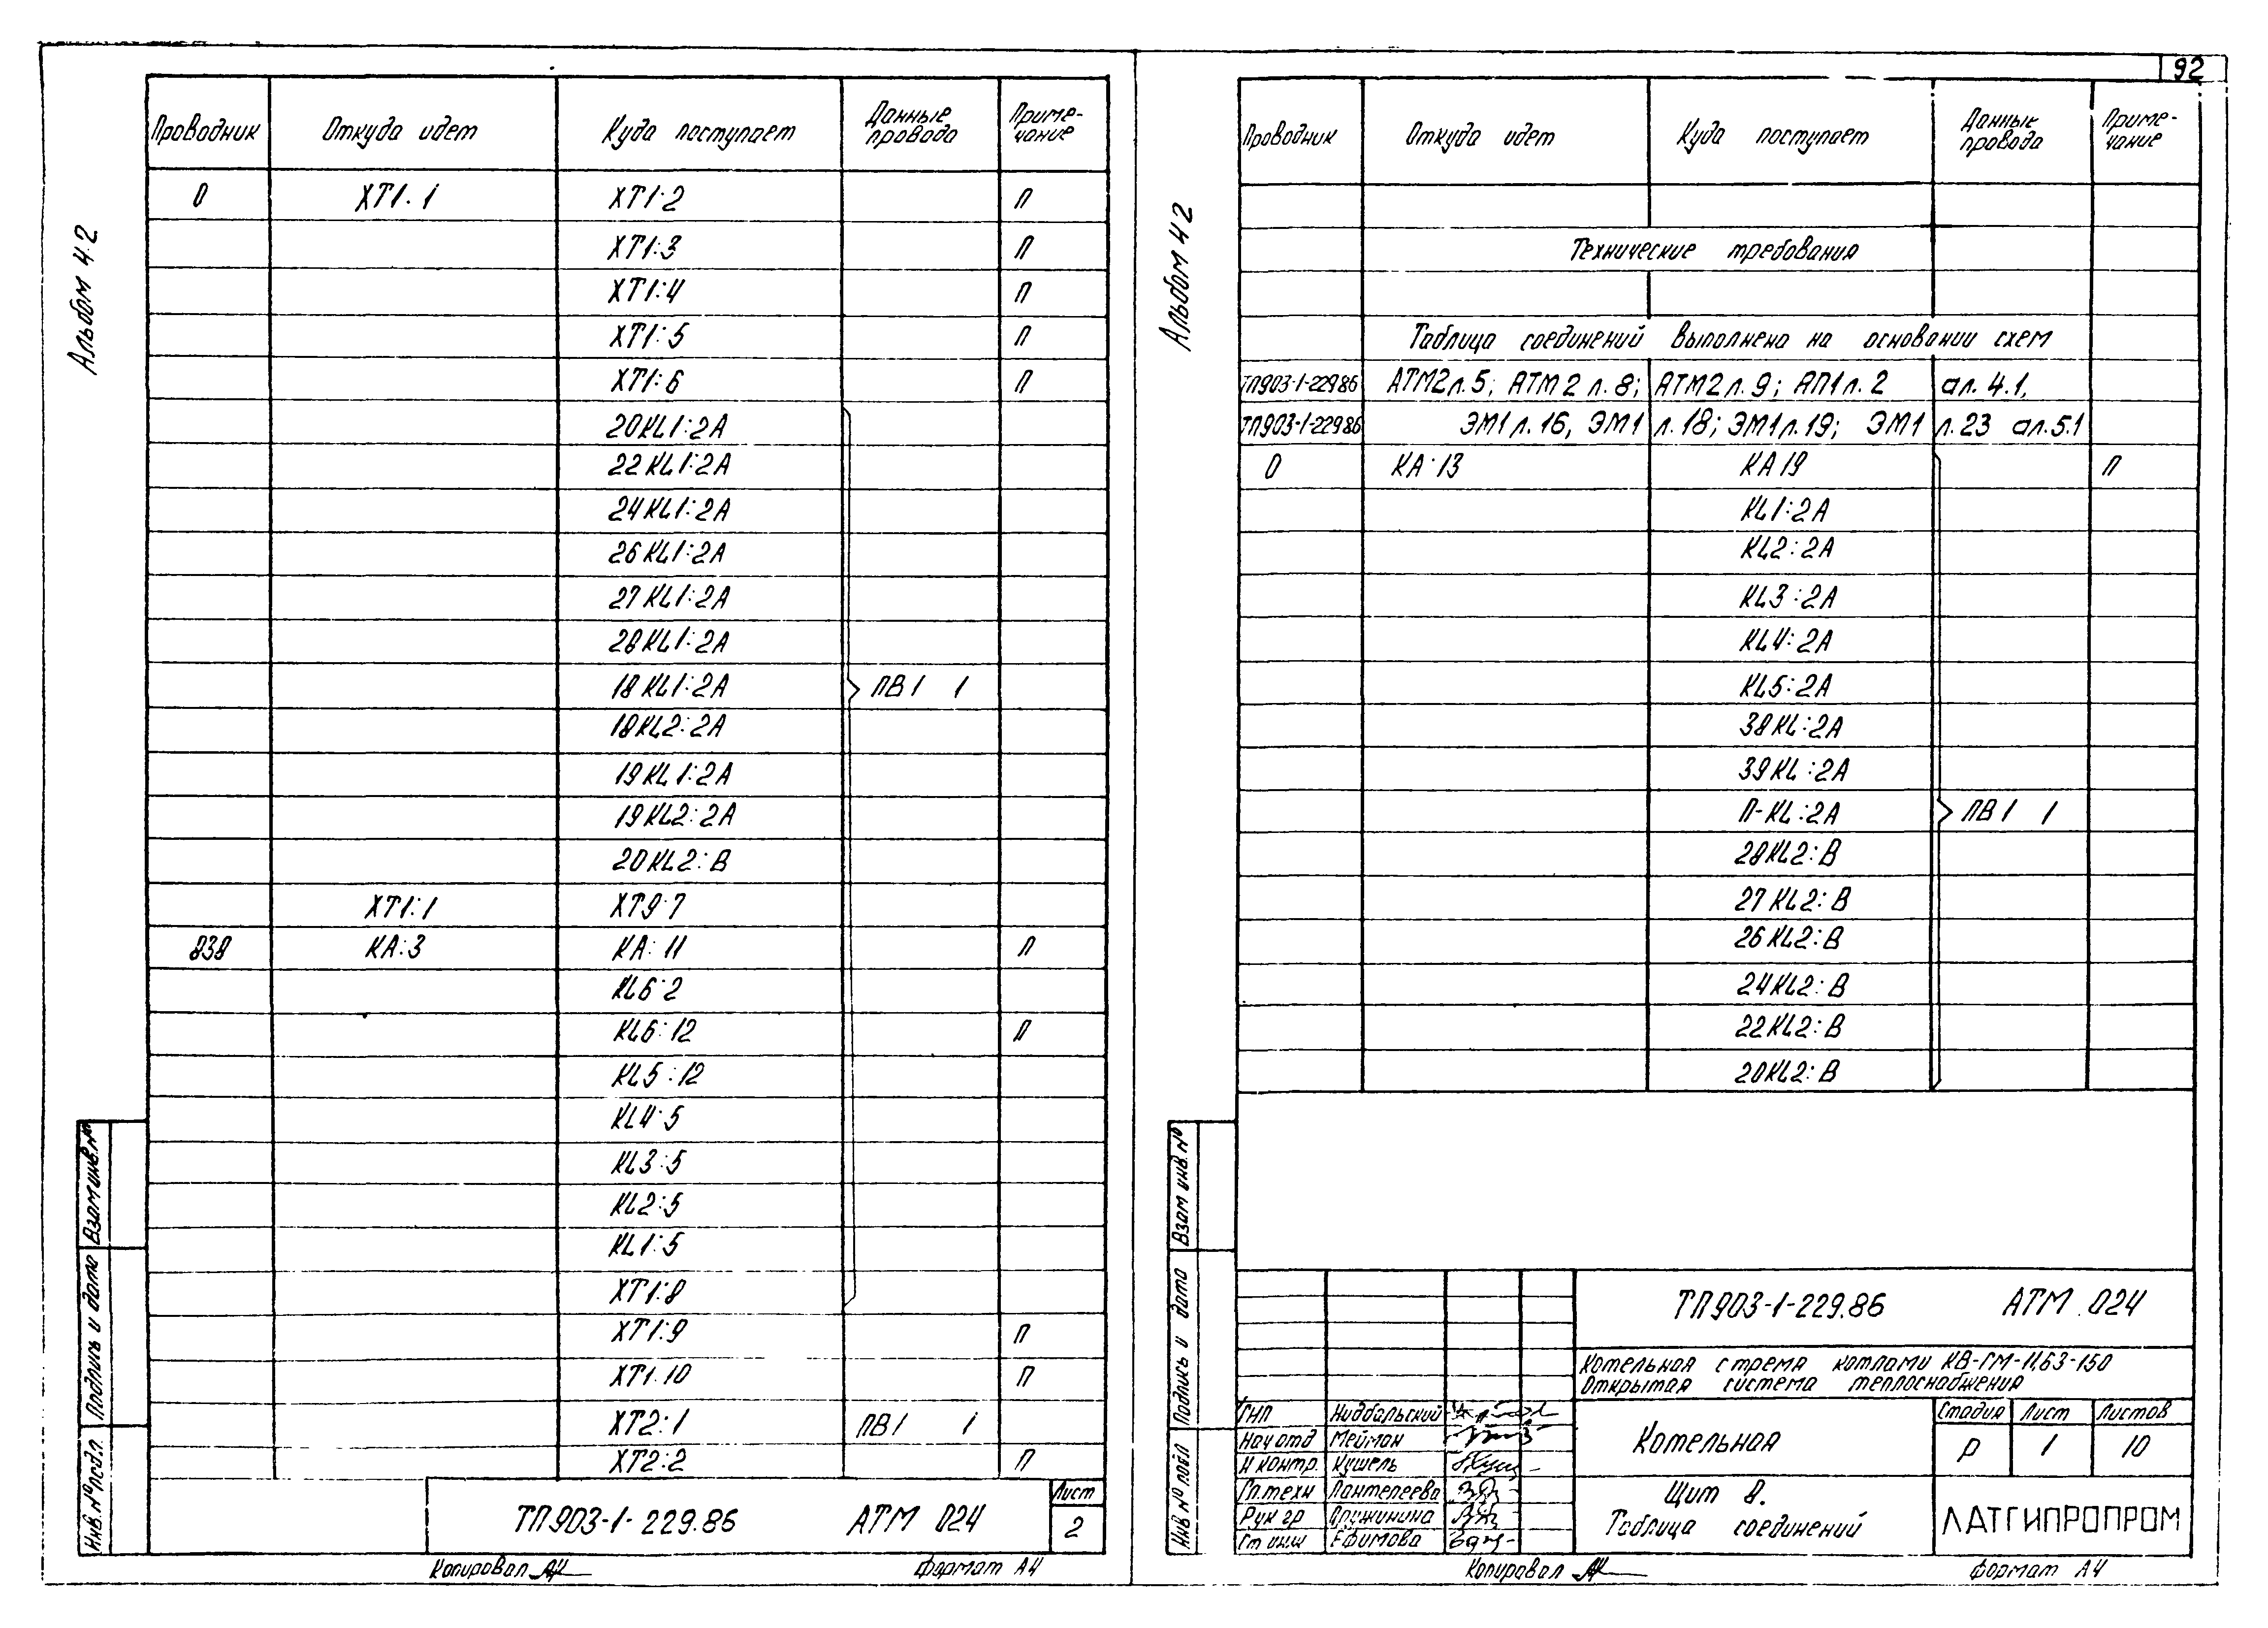 92
Альбом 4.2
Проводник Откуда идет Куда поступает Данные провода Примечание
0 ХТ1.1 ХТ1:2 П
ХТ1:3 П
ХТ1:4 П
ХТ1:5 П
ХТ1:6 П
20KL1:2А
22KL1:2А
24KL1:2А
26KL1:2А
27KL1:2А
28KL1:2А
18KL1:2А ПВ1 1
18KL2:2А
19KL1:2А
19KL2:2А
20KL2:В
ХТ1:1 ХТ9:7
838 КА:3 КА:11 П
KL6:2
KL6:12 П
KL5:12
KL4:5
KL3:5
KL2:5
KL1:5
ХТ1:8
ХТ1:9 П
ХТ1.10 П
ХТ2:1 ПВ1 1
ХТ2:2 П
ТП903-1-229.86 АТМ 024
Лист
2
Взам инв.№
Подпись и дата
Инв.№ подл.
Копировал
Формат А4
Альбом 4 2
Проводник Откуда идет Куда поступает Данные провода Приме-чание
Технические требования
Таблица соединений выполнена на основании схем
ТП903-1-22986 АТМ2л.5; АТМ2 л.8; АТМ2л.9; АП1л.2 ал. 4.1,
ТП903-1-22986 ЭМ1л.16, ЭМ1 л.18; ЭМ1л.19; ЭМ1 л.23 ал.5.1
0 КА:13 КА19 П
KL1:2А
KL2:2А
KL3:2А
KL4:2А
KL5:2А
38KL:2А
39KL:2А
П-KL:2А ПВ1 1
28KL2:В
27KL2:В
26KL2:В
24KL2:В
22KL2:В
20KL2:В
Взам инв.№
Подпись и дата
Инв № подл
ТП903-1-229.86 АТМ.024
Котельная с тремя котлами КВ-ГМ-11,63-150
Открытая система теплоснабжения
ГИП Нидбальский
Нач отд Мейман
Н контр. Кушель
Гл.техн Пантелеева
Рук гр Пружинина
Ст инж Ефимова
Котельная
Стадия Лист Листов
Р 1 10
Щит 8.
Таблица соединений
ЛАТГИПРОПРОМ
Копировал
Формат А4